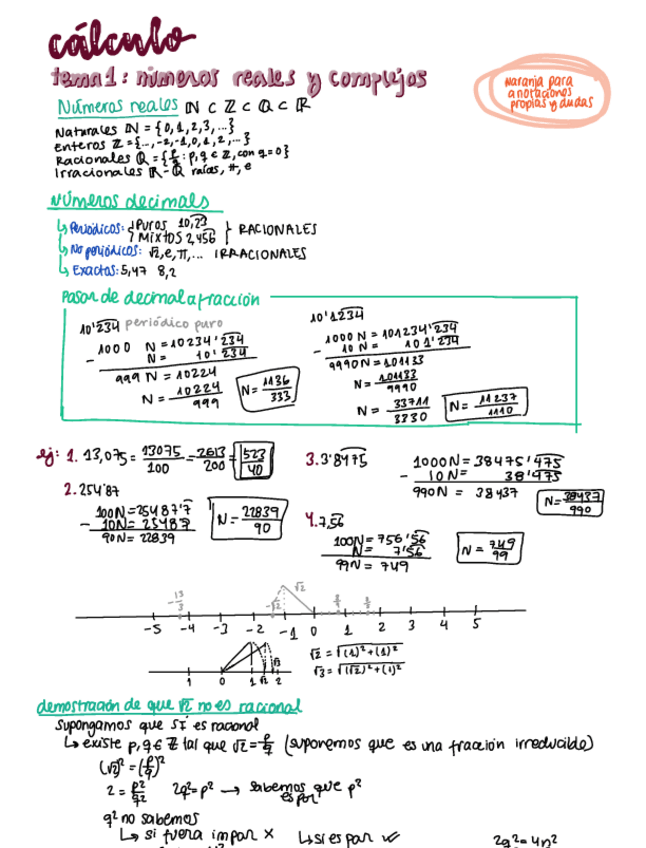 cálculo
tema 1: números reales y complejos
Naranja para
anotaciones
propias y dudas
Números reales ℕ ⊂ ℤ ⊂ ℚ ⊂ ℝ
Naturales ℕ = {0, 1, 2, 3, ...}
Enteros ℤ = {..., -2, -1, 0, 1, 2, ...}
Racionales ℚ = {p/q : p, q ∈ ℤ, con q = 0}
Irracionales ℝ - ℚ raíces, π, e
Números decimals
↳ Periódicos: { Puros 10,23
Mixtos 2,456 } RACIONALES
↳ No periódicos: √2, e, π, ... IRRACIONALES
↳ Exactas: 5,47 8,2
Pasar de decimal a fracción
10'234 periódico puro
1000 N = 10234'234
- N = 10'234
999 N = 10224
N = 10224/999
N = 1136/333
10'1234
1000 N = 101234'234
- 10 N = 101'234
9990 N = 101133
N = 101133/9990
N = 33711/3330
N = 11237/1110
ej: 1. 13,075 = 13075/100 = 2613/200 = 523/40
2. 254'87
100N = 25487'7
- 10N = 2548'7
90N = 22839
N = 22839/90
3. 3'8475
1000N = 38475'475
- 10N = 38'475
990N = 38437
N = 38437/990
4. 7,56
100N = 756'56
N = 7'56
99N = 749
N = 749/99
-13/3 -√2 √2
-5 -4 -3 -2 -1 0 1 2 3 4 5
1 0 1 √2 √3 2
√2 = √((1)²+(1)²)
√3 = √((√2)²+(1)²)
demostración de que √2 no es racional
Supongamos que SÍ es racional
↳ existe p, q ∈ ℤ tal que √2 = p/q (suponemos que es una fracción irreducible)
(√2)² = (p/q)²
2 = p²/q² 2q² = p² → sabemos que p²
es par
q² no sabemos
↳ si fuera impar × ↳ si es par ✓
2q² = 4n²